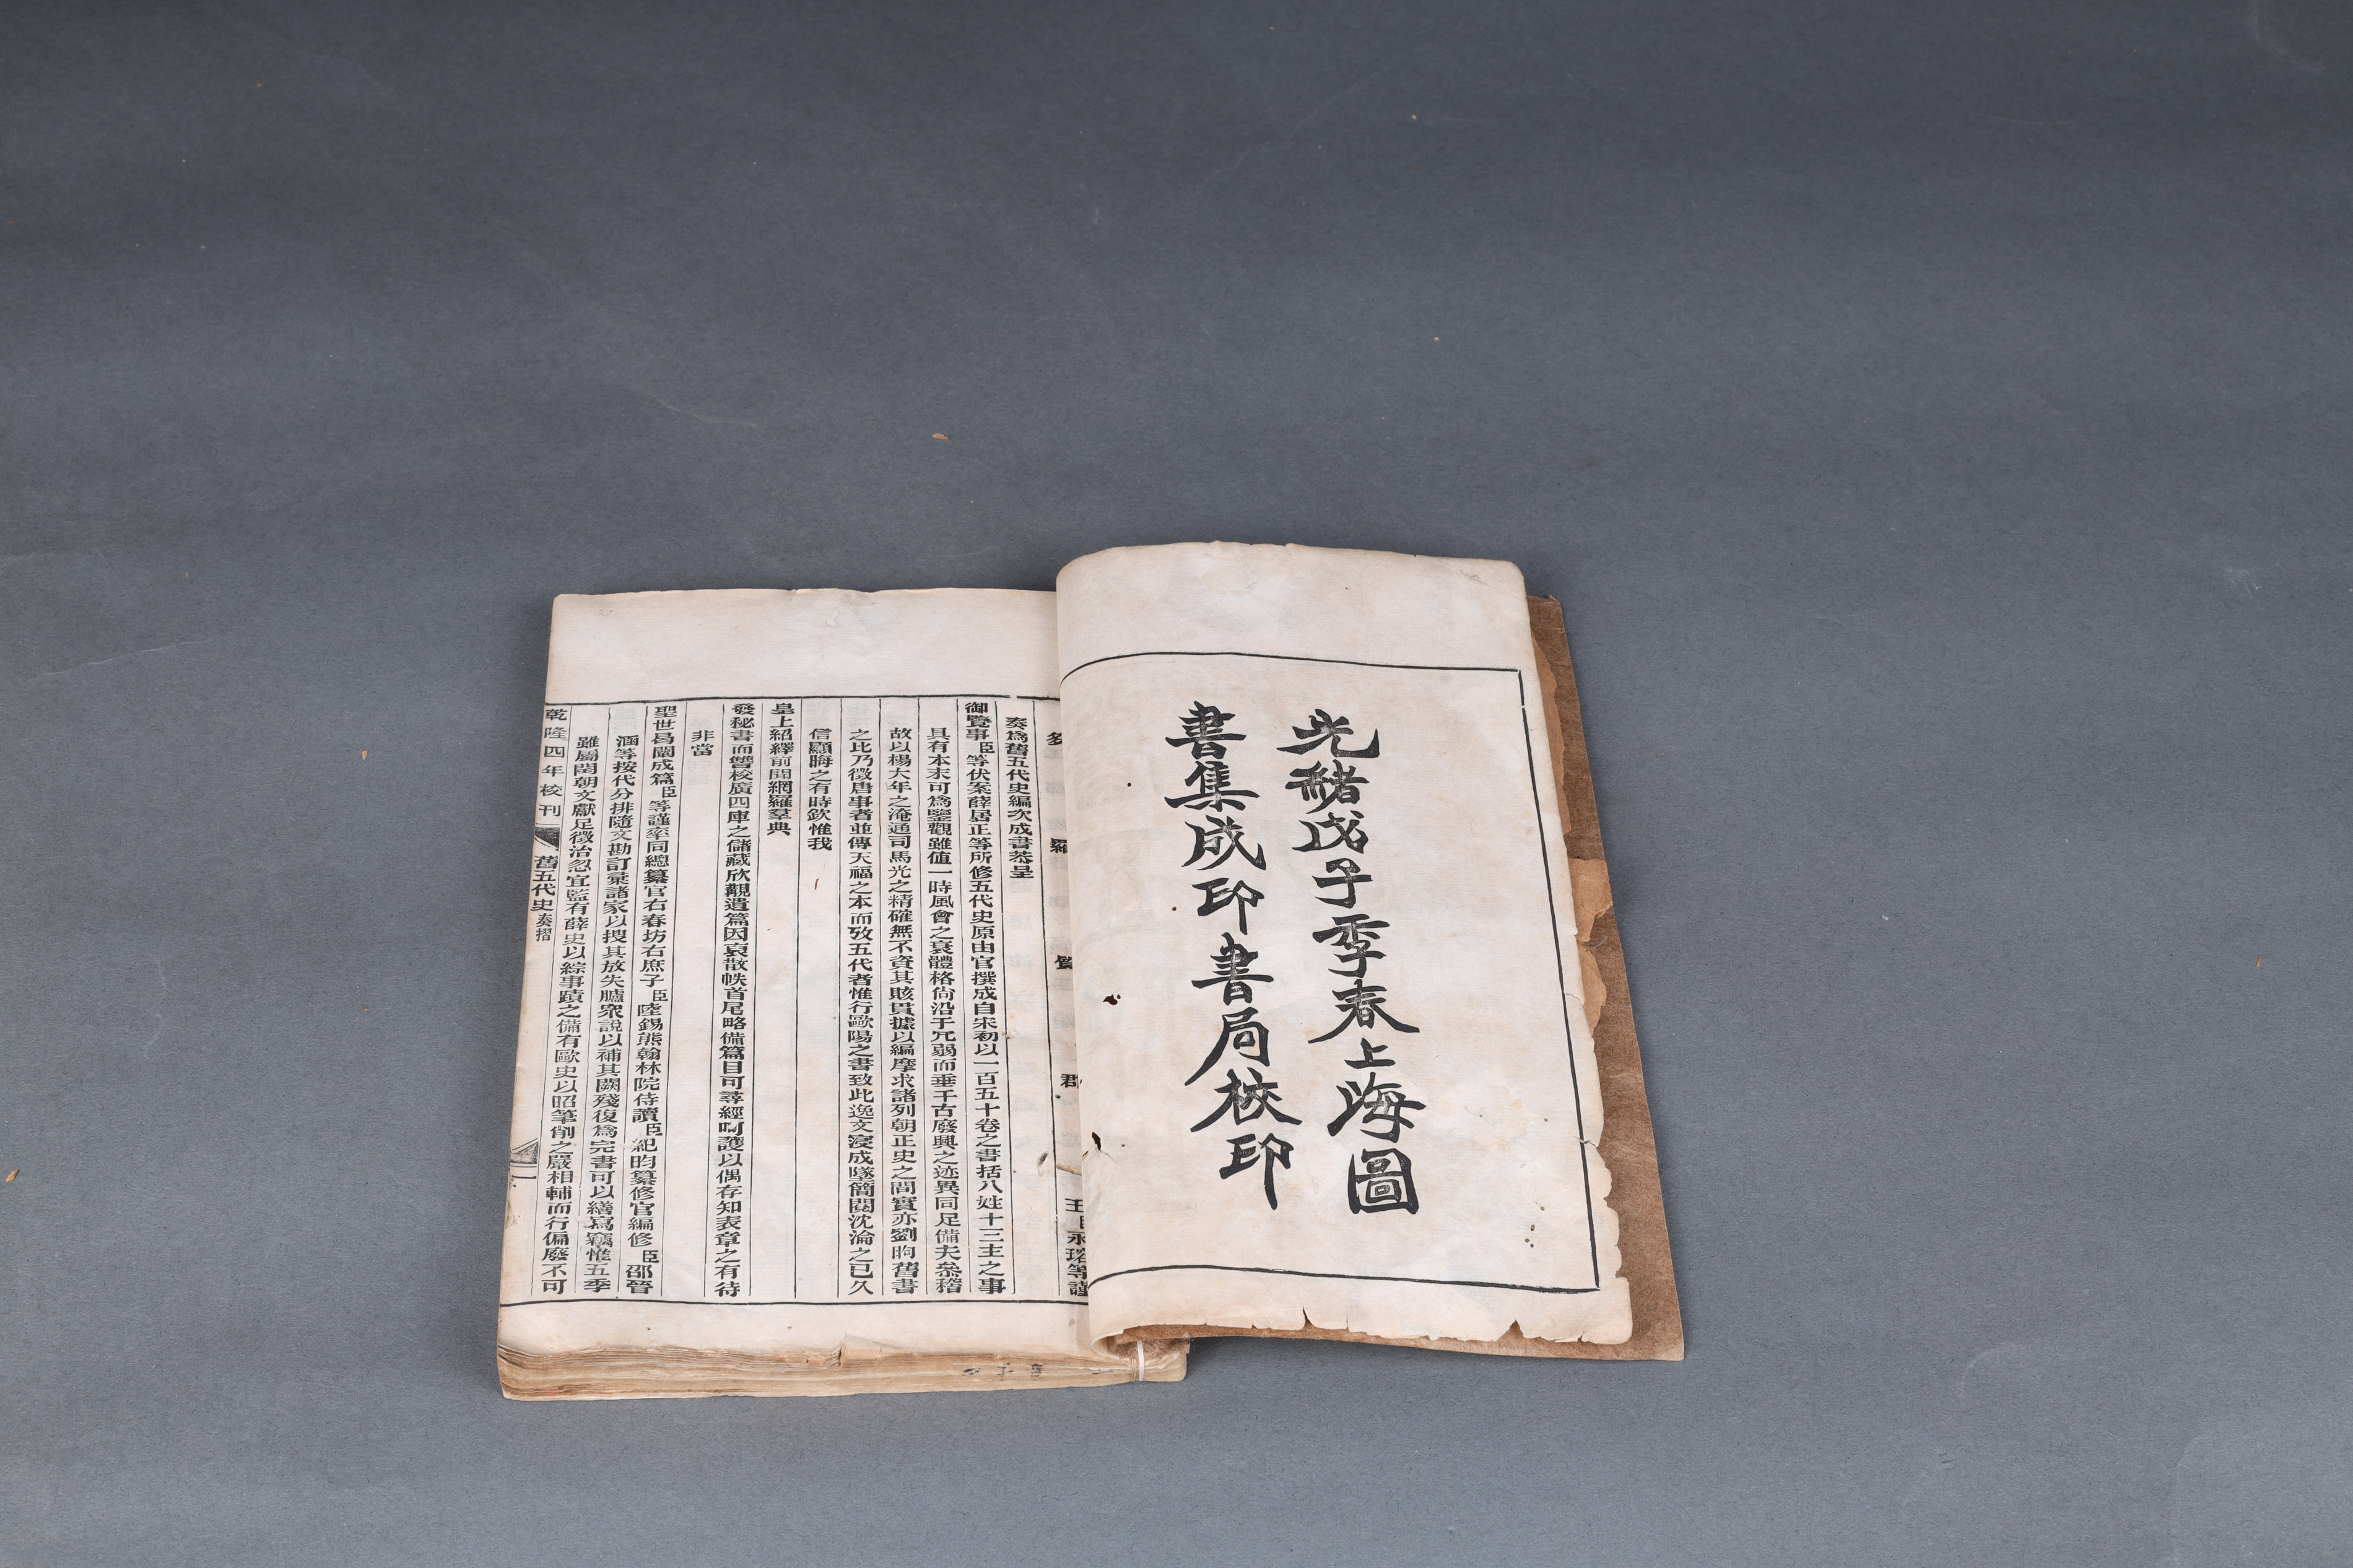 光緒戊子季春上海圖
書集成印書局校印
多羅質郡王臣永瑢等謹
奏爲舊五代史編次成書恭呈
御覽事臣等伏案薛居正等所修五代史原由官撰成自宋初以一百五十卷之書括八姓十三主之事
具有本末可爲鑒觀雖値一時風會之衰體格尙沿于冗弱而垂千古廢興之迹異同足備夫參稽
故以楊大年之淹通司馬光之精確無不資其賅貫據以編摩求諸列朝正史之間實亦劉昫舊書
之比乃徵唐事者並傳天福之本而攷五代者惟行歐陽之書致此逸文寖成墜簡閱沈淪之已久
信顯晦之有時欽惟我
皇上紹繹前聞網羅羣典
發秘書而讐校廣四庫之儲藏欣觀遺篇因裒散帙首尾略備篇目可尋經呵護以偶存知表章之有待
非當
聖世曷闡成篇臣等謹率同總纂官右春坊右庶子臣陸錫熊翰林院侍讀臣紀昀纂修官編修臣邵晉
涵等按代分排隨文勘訂彙諸家以搜其放失臚衆說以補其闕殘復爲完書可以繕寫竊惟五季
雖屬閏朝文獻足徵治忽宜監有薛史以綜事蹟之備有歐史以昭筆削之嚴相輔而行偏廢不可
乾隆四年校刊
舊五代史 奏摺